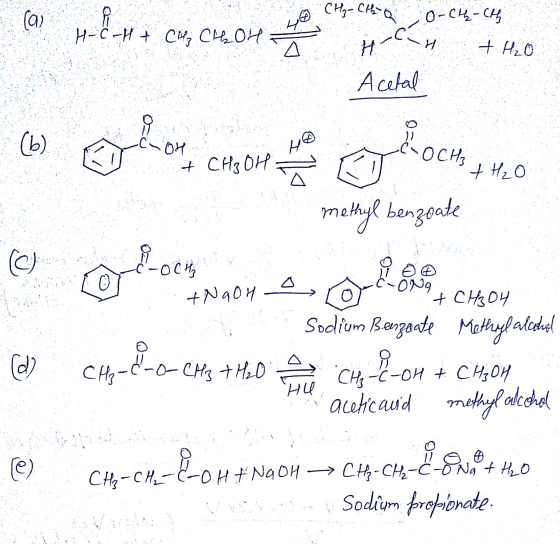 (a) H-C-H + CH3 CH2OH ⇌ H⊕ Δ CH3-CH2-O O-CH2-CH3 C H H + H2O
O
Acetal
(b) O C-OH + CH3OH ⇌ H⊕ Δ O C OCH3 + H2O
methyl benzoate
(c) O C-OCH3 + NaOH Δ → O C-O⊖Na⊕ + CH3OH
Sodium Benzoate Methyl alcohol
(d) CH3-C-O-CH3 + H2O Δ ⇌ HCl CH3-C-OH + CH3OH
O O
acetic acid methyl alcohol
(e) CH3-CH2-C-OH + NaOH → CH3-CH2-C-O⊖Na⊕ + H2O
O O
Sodium propionate.